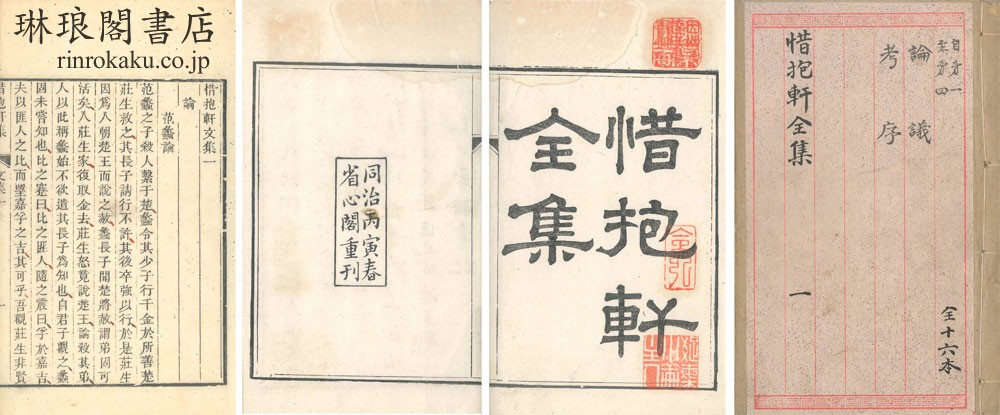 琳琅閣書店
rinrokaku.co.jp
惜抱軒文集一
論
范蠡論
范蠡之子殺人繫于楚蠡令其少子行千金於所善楚
莊生救之其長子請行不許其後卒強以行於是莊生
因爲入朝楚王而說之赦蠡長子聞楚將赦謂弟固可
活矣入莊生家復取金去莊生怒竟說楚王論殺其弟
人以此稱蠡始不欲遣其長子爲知也自君子觀之蠡
固未嘗知也比之蹇曰比之匪人隨之震曰孚於嘉吉
夫以匪人之比而望嘉孚之吉其可乎吾觀莊生非賢
惜抱軒
全集
同治丙寅春
省心閣重刊
自第一
至第四
論議
考序
惜抱軒全集
一
全十六本